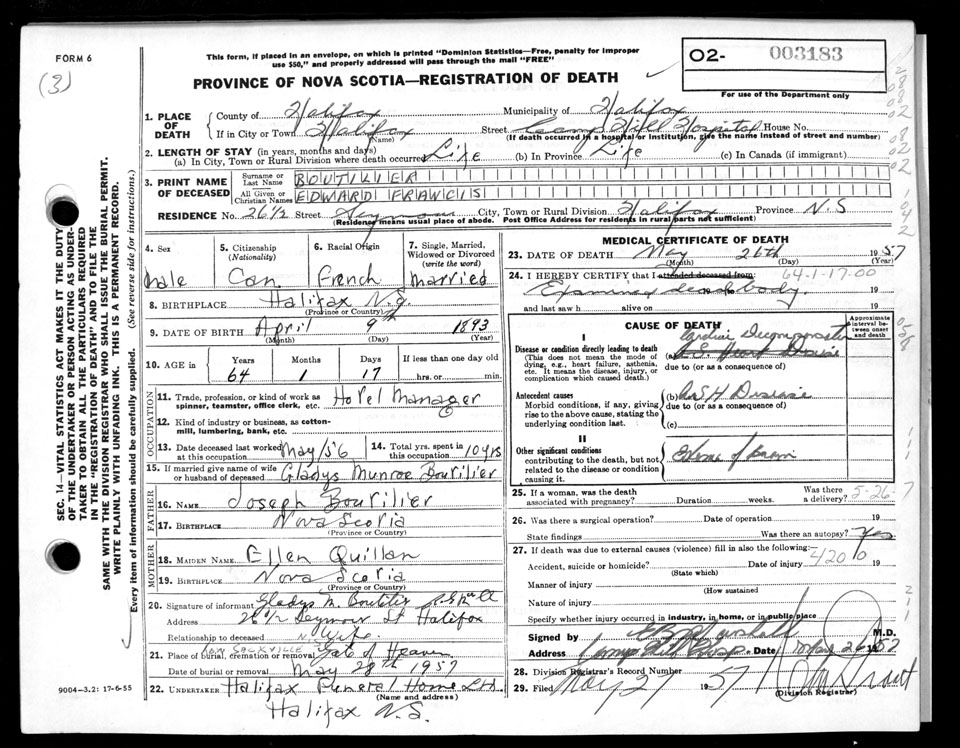 FORM 6
(3)
This form, if placed in an envelope, on which is printed "Dominion Statistics—Free, penalty for improper
use $50," and properly addressed will pass through the mail "FREE"
PROVINCE OF NOVA SCOTIA—REGISTRATION OF DEATH
O2- 003183
For use of the Department only
1. PLACE OF DEATH
County of Halifax Municipality of Halifax
If in City or Town Halifax Street Camp Hill Hospital House No.
(Name) (If death occurred in a hospital or institution, give the name instead of street and number)
2. LENGTH OF STAY (in years, months and days)
(a) In City, Town or Rural Division where death occurred Life (b) In Province Life (c) In Canada (if immigrant)
3. PRINT NAME OF DECEASED
Surname or Last Name BOUTILIER
All Given or Christian Names EDWARD FRANCIS
RESIDENCE No. 26 1/2 Street Seymour City, Town or Rural Division Halifax Province N.S
(Residence means usual place of abode. Post Office Address for residents in rural parts not sufficient)
4. Sex Male
5. Citizenship (Nationality) Can.
6. Racial Origin French
7. Single, Married, Widowed or Divorced (write the word) Married
8. BIRTHPLACE Halifax N.S.
(Province or Country)
9. DATE OF BIRTH April 9th 1893
(Month) (Day) (Year)
10. AGE Years 64 Months 1 Days 17 If less than one day old hrs. or min.
OCCUPATION
11. Trade, profession, or kind of work as spinner, teamster, office clerk, etc. Hotel Manager
12. Kind of industry or business, as cotton-mill, lumbering, bank, etc.
13. Date deceased last worked at this occupation May/56
14. Total yrs. spent in this occupation 10 yrs
15. If married give name of wife or husband of deceased Gladys Munroe Boutilier
FATHER
16. NAME Joseph Boutilier
17. BIRTHPLACE Nova Scotia
(Province or Country)
MOTHER
18. MAIDEN NAME Ellen Quillan
19. BIRTHPLACE Nova Scotia
(Province or Country)
20. Signature of informant Gladys M. Boutilier
Address 26 1/2 Seymour St Halifax
Relationship to deceased N.S. Wife.
21. Place of burial, cremation or removal Gate of Heaven
LOW SACKVILLE
Date of burial or removal May 28th 1957
22. UNDERTAKER Halifax Funeral Home Ltd.
(Name and address)
Halifax N.S.
9004—3.2: 17-6-55
SEC. 14—VITAL STATISTICS ACT MAKES IT THE DUTY
OF THE UNDERTAKER OR PERSON ACTING AS UNDER-
TAKER TO OBTAIN ALL THE PARTICULARS REQUIRED
IN THE "REGISTRATION OF DEATH" AND TO FILE THE
SAME WITH THE DIVISION REGISTRAR WHO SHALL ISSUE THE BURIAL PERMIT.
WRITE PLAINLY WITH UNFADING INK. THIS IS A PERMANENT RECORD.
Every item of information should be carefully supplied. (See reverse side for instructions.)
MEDICAL CERTIFICATE OF DEATH
23. DATE OF DEATH May 26th 1957
(Month) (Day)
24. I HEREBY CERTIFY that I attended deceased from: 64-1-17-00
Examined dead body. 19
and last saw h alive on 19
CAUSE OF DEATH
Approximate interval between onset and death
I
Disease or condition directly leading to death
(This does not mean the mode of dying, e.g., heart failure, asthenia, etc. It means the disease, injury, or complication which caused death.)
(a) Cardiac Decompensation
due to (or as a consequence of)
Antecedent causes
Morbid conditions, if any, giving rise to the above cause, stating the underlying condition last.
(b) A.S.H. Disease
due to (or as a consequence of)
(c)
II
Other significant conditions
contributing to the death, but not related to the disease or condition causing it.
of Brain
25. If a woman, was the death associated with pregnancy? Duration weeks. Was there a delivery? 5-26-7
26. Was there a surgical operation? Date of operation 19
State findings Was there an autopsy? Yes
27. If death was due to external causes (violence) fill in also the following:
Accident, suicide or homicide? Date of injury 19
(State which)
4200
Manner of injury
(How sustained)
Nature of injury
Specify whether injury occurred in industry, in home, or in public place
Signed by Marshall M.D.
Address Camp Hill Hosp. Date May 26 1957
28. Division Registrar's Record Number
29. Filed May 27 1957
(Division Registrar)